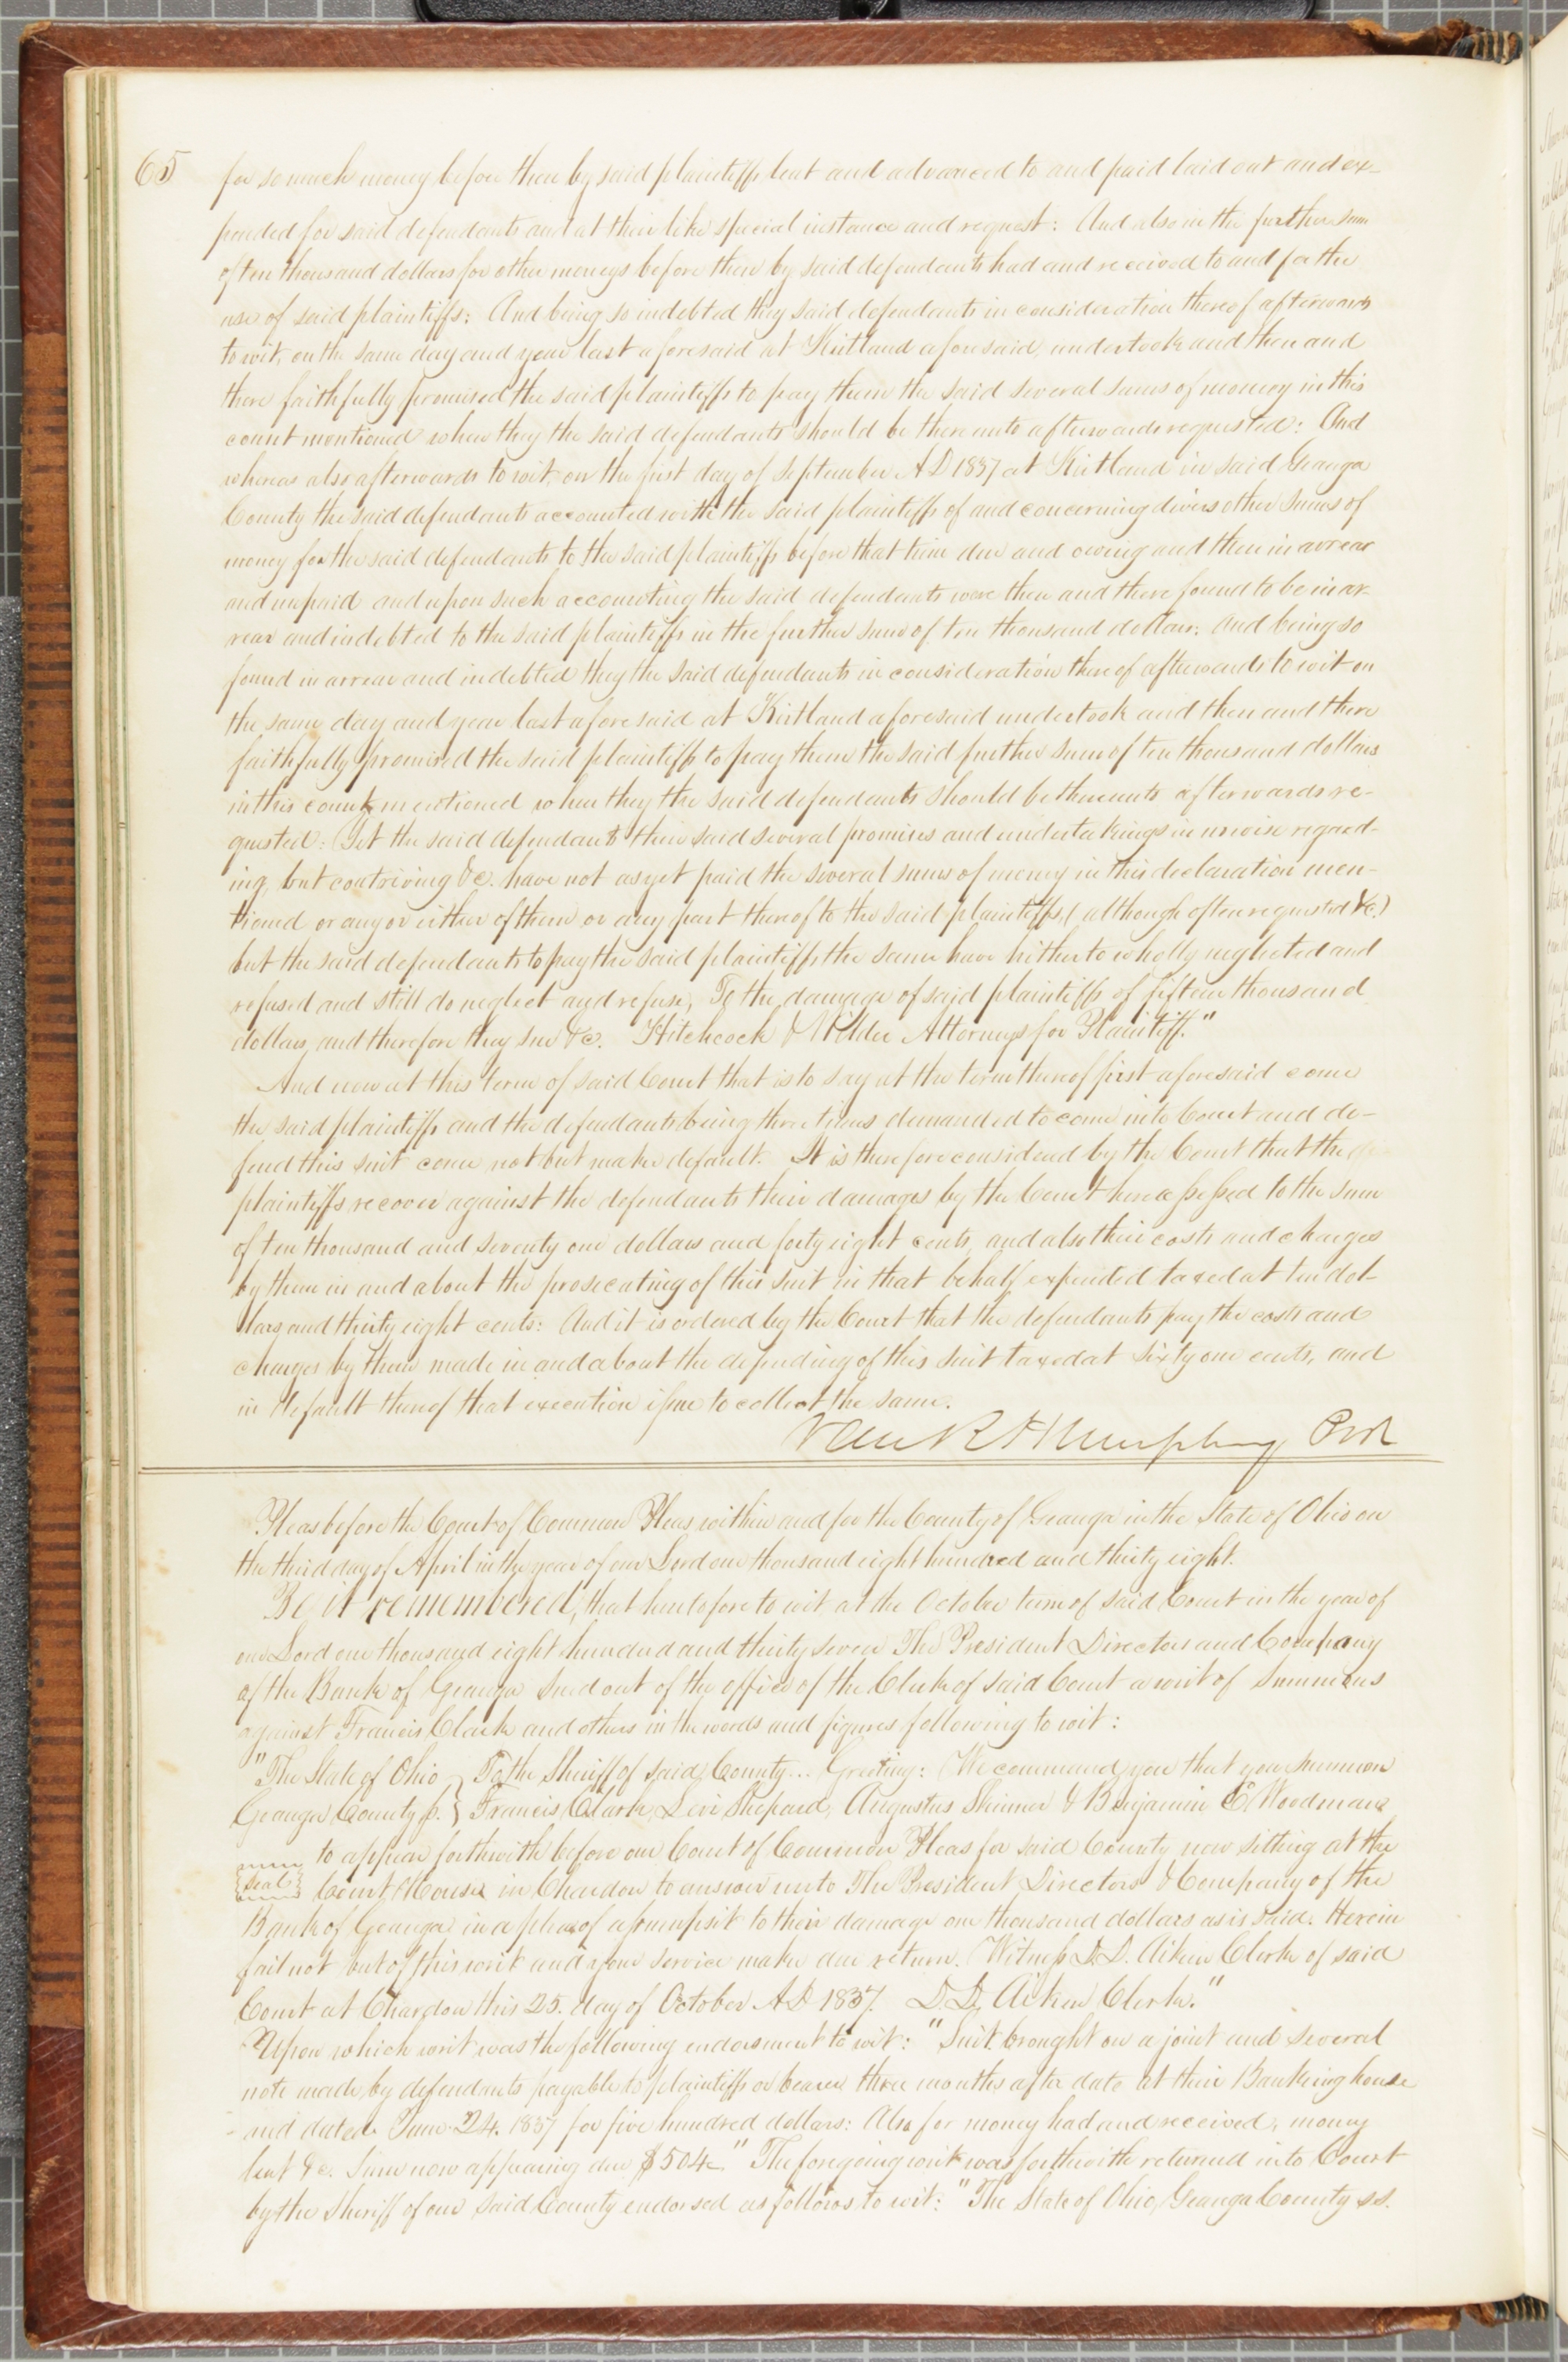 65
for so much money before then by said plaintiffs lent and advanced to and paid laid out and ex-
pended for said defendants and at their like special instance and request: And also in the further sum
of ten thousand dollars for other moneys before then by said defendants had and received to and for the
use of said plaintiffs: And being so indebted they said defendants in consideration thereof afterwards
to wit, on the same day and year last aforesaid at Kirtland aforesaid, undertook and then and
there faithfully promised the said plaintiffs to pay them the said several sums of money in this
count mentioned when they the said defendants should be thereunto afterwards requested: And
whereas also afterwards to wit, on the first day of September A D 1837 at Kirtland in said Geauga
County the said defendants accounted with the said plaintiffs of and concerning divers other sums of
money for the said defendants to the said plaintiffs before that time due and owing and then in arrear
and unpaid and upon such accounting the said defendants were then and there found to be in ar-
rear and indebted to the said plaintiffs in the further sum of ten thousand dollars: And being so
found in arrear and indebted they the said defendants in consideration thereof afterwards to wit on
the same day and year last aforesaid at Kirtland aforesaid undertook and then and there
faithfully promised the said plaintiffs to pay them the said further sum of ten thousand dollars
in this count mentioned when they the said defendants should be thereunto afterwards re-
quested: Yet the said defendants their said several promises and undertakings in nowise regard-
ing, but contriving &c. have not as yet paid the several sums of money in this declaration men-
tioned or any or either of them or any part thereof to the said plaintiffs, (although often requested &c.)
but the said defendants to pay the said plaintiffs the same have hitherto wholly neglected and
refused and still do neglect and refuse, To the damage of said plaintiffs of fifteen thousand
dollars, and therefore they sue &c. Hitchcock & Wilder Attorneys for Plaintiff."
And now at this term of said Court that is to say at the term thereof first aforesaid come
the said plaintiffs and the defendants being three times demanded to come into Court and de-
fend this suit come not but make default. It is therefore considered by the Court that the
plaintiffs recover against the defendants their damages by the Court here assessed to the sum
of ten thousand and seventy one dollars and forty eight cents, and also their costs and charges
by them in and about the prosecuting of this suit in that behalf expended taxed at ten dol-
lars and thirty eight cents: And it is ordered by the Court that the defendants pay the costs and
charges by them made in and about the defending of this suit taxed at sixty one cents, and
in default thereof that execution issue to collect the same.
Van R Humphrey
Pleas before the Court of Common Pleas within and for the County of Geauga in the State of Ohio on
the third day of April in the year of our Lord one thousand eight hundred and thirty eight.
Be it remembered, that heretofore to wit, at the October term of said Court in the year of
our Lord one thousand eight hundred and thirty seven The President Directors and Company
of the Bank of Geauga sued out of the office of the Clerk of said Court a writ of Summons
against Francis Clark and others in the words and figures following to wit:
"The State of Ohio } To the Sheriff of said County... Greeting: We command you that you summon
Geauga County ss. } Francis Clark, Levi Shepard, Augustus Skinner & Benjamin C Woodman
to appear forthwith before our Court of Common Pleas for said County now sitting at the
Seal Court House in Chardon to answer unto The President Directors & Company of the
Bank of Geauga in a plea of assumpsit to their damage one thousand dollars as is said: Herein
fail not but of this writ and your service make due return. Witness D. D. Aiken Clerk of said
Court at Chardon this 25. day of October A D 1837. D. D. Aiken Clerk."
Upon which writ was the following endorsement to wit: "Suit brought on a joint and several
note made by defendants payable to plaintiffs or bearer three months after date at their Banking house
and dated June 24. 1837 for five hundred dollars: Also for money had and received, money
lent &c. Sum now appearing due $504" The foregoing writ was forthwith returned into Court
by the Sheriff of our said County endorsed as follows to wit: "The State of Ohio, Geauga County ss.